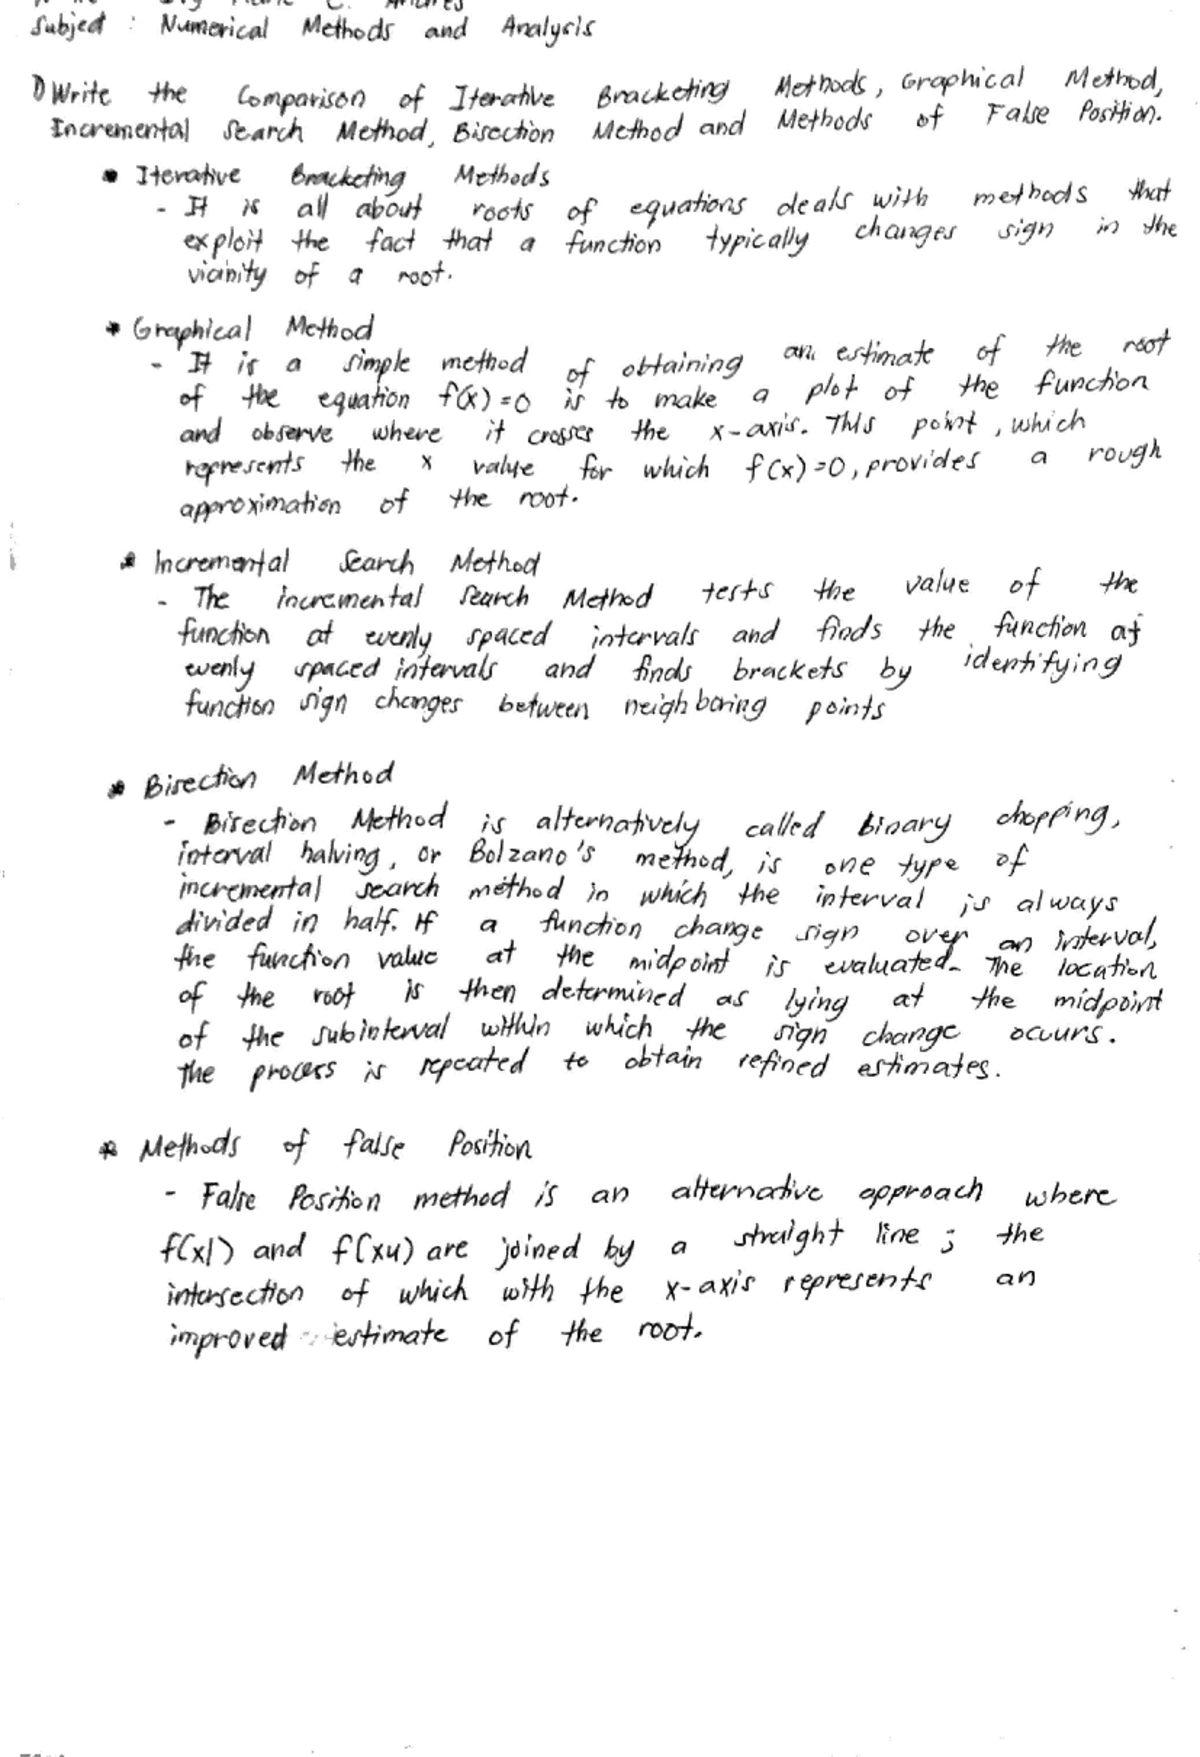 Subject : Numerical Methods and Analysis
1) Write the Comparison of Iterative Bracketing Methods, Graphical Method,
Incremental Search Method, Bisection Method and Methods of False Position.
• Iterative Bracketing Methods
- It is all about roots of equations deals with methods that
exploit the fact that a function typically changes sign in the
vicinity of a root.
* Graphical Method
- It is a simple method of obtaining an estimate of the root
of the equation f(x)=0 is to make a plot of the function
and observe where it crosses the x-axis. This point, which
represents the x value for which f(x)=0, provides a rough
approximation of the root.
* Incremental Search Method
- The incremental search Method tests the value of the
function at evenly spaced intervals and finds the function at
evenly spaced intervals and finds brackets by identifying
function sign changes between neighboring points
* Bisection Method
- Bisection Method is alternatively called binary chopping,
interval halving, or Bolzano's method, is one type of
incremental search method in which the interval is always
divided in half. If a function change sign over an interval,
the function value at the midpoint is evaluated. The location
of the root is then determined as lying at the midpoint
of the subinterval within which the sign change occurs.
The process is repeated to obtain refined estimates.
* Methods of false Position
- False Position method is an alternative approach where
f(xl) and f(xu) are joined by a straight line ; the
intersection of which with the x-axis represents an
improved estimate of the root.